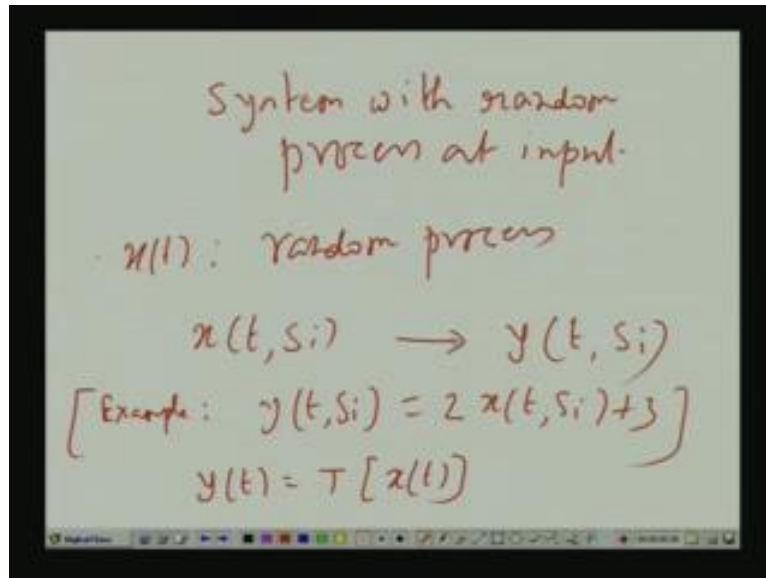 System with random
process at input.
x(t): random process
x(t, Si) → y(t, Si)
[Example: y(t, Si) = 2 x(t, Si) + 3]
y(t) = T [x(t)]